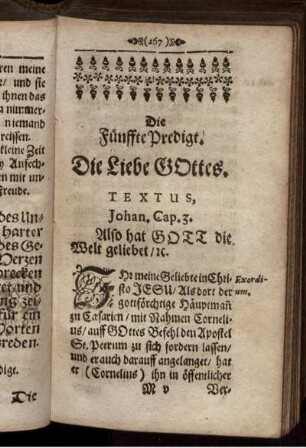 ren meine
/ und sie
ihnen das
n nimmer-
niemand
reissen.
kleine Zeit
Anfech-
en mit un-
Freude.
des Un-
harter
des Ge-
Herzen
brecken
ret und
ng zei-
für ein
Worten
reden.
digt.
Die
(167)
Die
Fünffte Predigt.
Die Liebe GOttes.
TEXTUS,
Johan. Cap. 3.
Also hat GOTT die
Welt geliebet/ ꝛc.
IHr meine Geliebte in Chri-
sto JESU/ Als dort der
gottsförchtige Häuptmañ
zu Cæsarien/ mit Nahmen Corneli-
us/ auff GOttes Befehl den Apostel
St. Petrum zu sich fordern lassen/
und er auch darauff angelanget/ hat
er (Cornelius) ihn in öffentlicher
Exordi-
um.
M v
Ver-